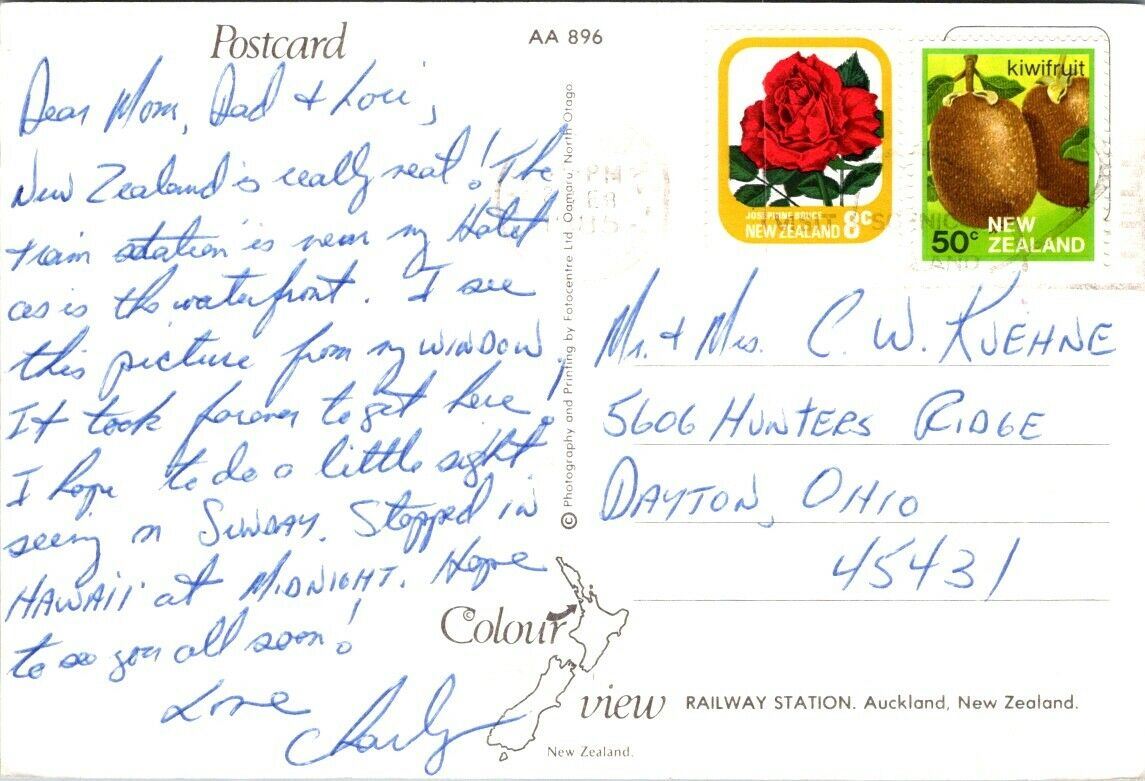 Postcard
AA 896
Dear Mom, Dad & Lori,
New Zealand is really neat! The
train station is near my Hotel
as is the waterfront. I see
this picture from my WINDOW.
It took forever to get here!
I hope to do a little sight
seeing on SUNDAY. Stopped in
HAWAII at MIDNIGHT. Hope
to see you all soon!
Love
© Photography and Printing by Fotocentre Ltd. Oamaru, North Otago.
JOSEPHINE BRUCE
NEW ZEALAND 8c
kiwifruit
50c NEW
ZEALAND
PM
Mr. & Mrs. C. W. KUEHNE
5606 HUNTERS RIDGE
DAYTON, OHIO
45431
© Colour
view
New Zealand.
RAILWAY STATION. Auckland, New Zealand.